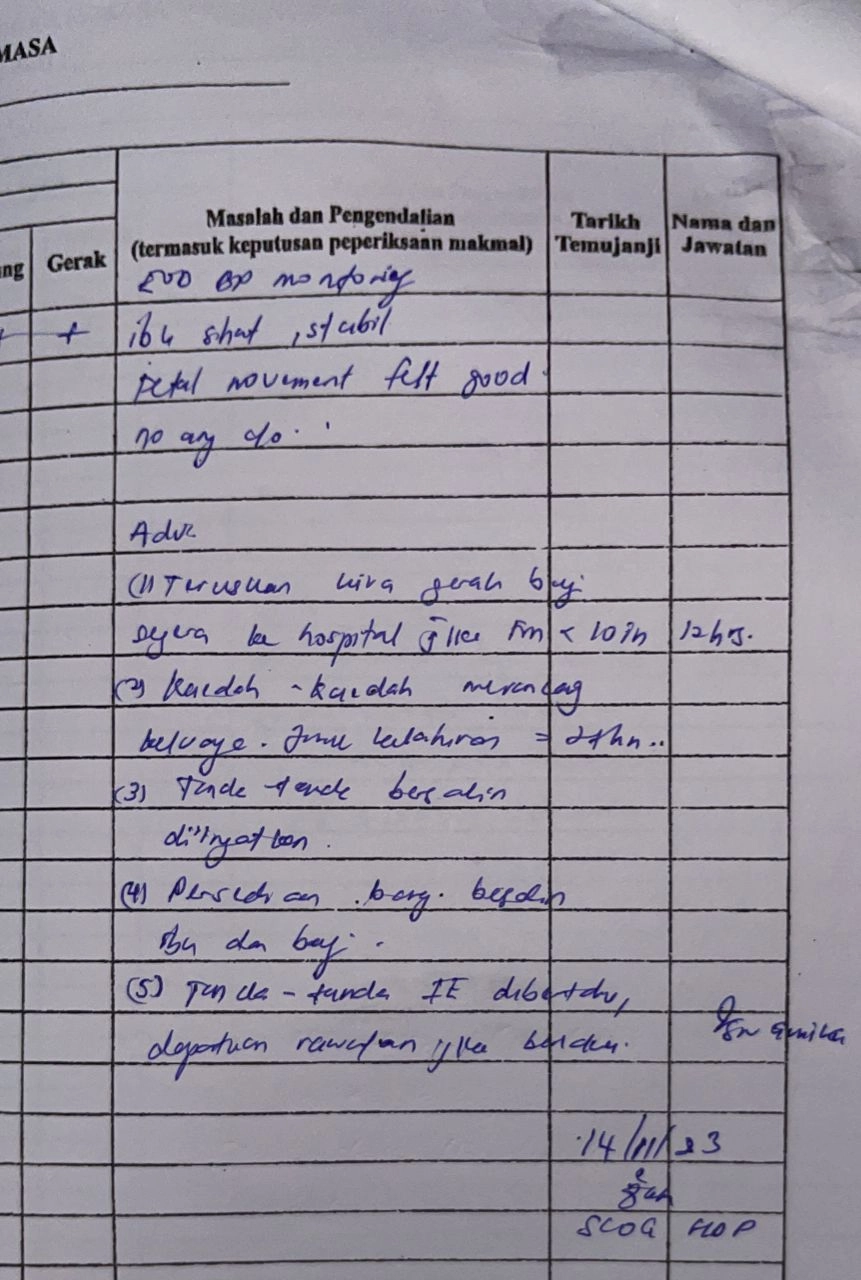 MASA
Masalah dan Pengendalian
(termasuk keputusan peperiksaan makmal)
Tarikh
Temujanji
Nama dan
Jawatan
ng
Gerak
EOD BP monitoring
+ ibu sihat, stabil
Fetal movement felt good.
no any c/o.
Adv:
(1) Teruskan kira gerak bayi
segera ke hospital jika Fm < 10 in 12 hrs.
(2) Kaedah - kaedah merancang
keluarga. Jarak kelahiran = 2 thn..
(3) Tanda - tanda bersalin
diingatkan.
(4) Persediaan barg. bersalin
ibu dan bayi.
(5) Tanda - tanda IE diberitahu,
dapatkan rawatan jika berlaku.
14/11/23
SCOG HOP